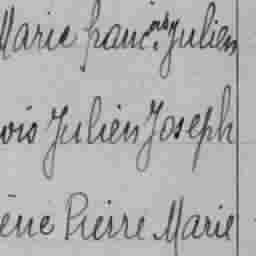 Marie franc.ois Julien
ois Julien Joseph
ène Pierre Marie